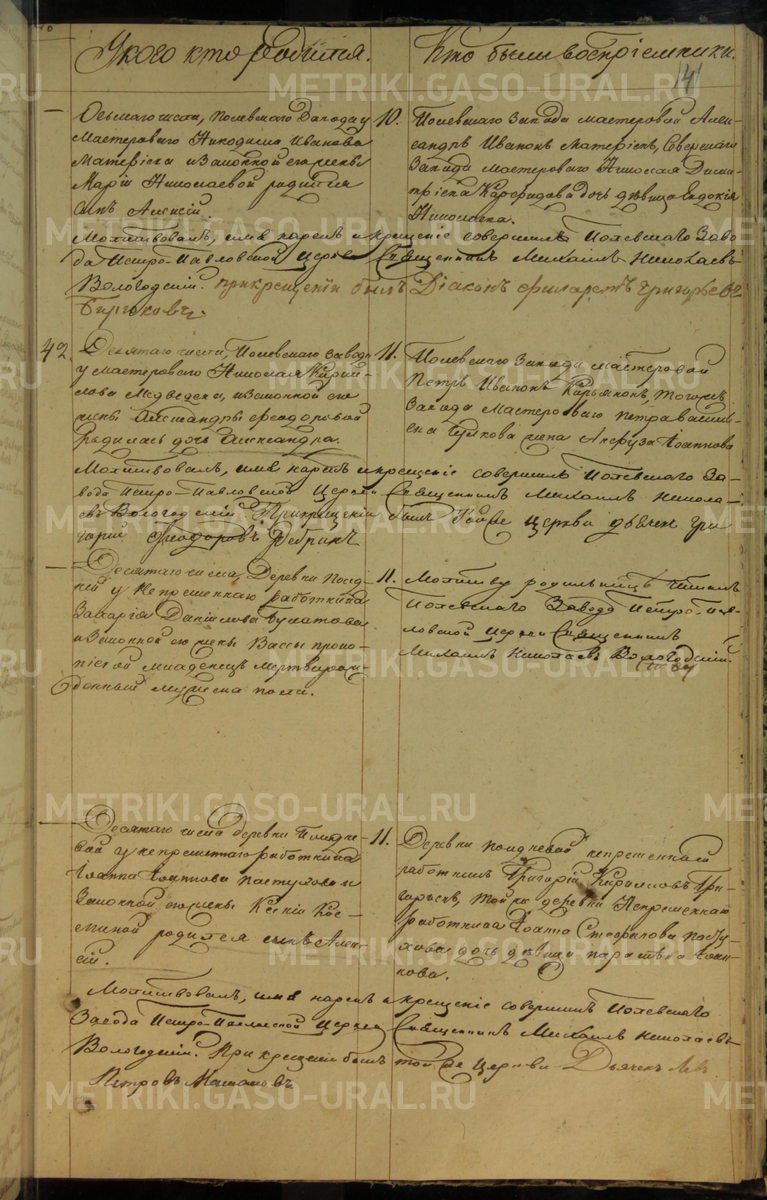 У кого кто родился.
Кто были восприемники.
141
Осьмаго числа, Полевскаго Завода у
Мастероваго Никодима Иванова
Матвѣева и законной его жены
Маріи Николаевой родился
сынъ Алексій.
10. Полевскаго Завода мастеровой Алек-
сандръ Ивановъ Матвѣевъ, Северскаго
Завода мастероваго Николая Дими-
тріева дочь дѣвица Евдокія
Николаева.
Молитвовалъ, имя нарекъ и крещеніе совершилъ Полевскаго Заво-
да Петро-Павловской Церкви Священникъ Михаилъ Николаевъ
Вологодскій. При крещеніи былъ Діаконъ Филаретъ Григорьевъ
42.
Десятаго числа, Полевскаго Завода
у мастероваго Николая Кирил-
лова Медведева, и законной его
жены Александры Феодоровой
родилась дочь Александра.
11. Полевскаго Завода мастеровой
Петръ Ивановъ Карьяковъ, тогоже
Завода Мастероваго Петра Василь-
ева жена Іоаннова
Молитвовалъ, имя нарекъ и крещеніе совершилъ Полевскаго За-
вода Петро-Павловской Церкви Священникъ Михаилъ Никола-
евъ Вологодскій. При крещеніи былъ тойже церкви дьячекъ Гри-
горій Феодоровъ
Десятаго числа, Деревни Полд-
ней у непременнаго работника
Захарія Даніилова Булатова
и законной его жены Вассы Проко-
піевой младенецъ мертворож-
денный мужеска пола.
11. Молитву родильницѣ читалъ
Полевскаго Завода Петро-Пав-
ловской Церкви Священникъ
Михаилъ Николаевъ Вологодскій.
Десятаго числа деревни Полдне-
вой у непременнаго работника
Іоанна Іоаннова Пастухова и
законной его жены Ксеніи Кос-
миной родился сынъ Алек-
сій.
11. Деревни Полдневой непременный
работникъ Григорій Кириловъ Гри-
горьевъ, той же деревни Непременнаго
работника Іоанна Пасту-
хова дочь дѣвица Параскева Іоан-
нова.
Молитвовалъ, имя нарекъ и крещеніе совершилъ Полевскаго
Завода Петро-Павловской Церкви Священникъ Михаилъ Николаевъ
Вологодскій. При крещеніи былъ той же Церкви Дьячекъ Левъ
Петровъ
METRIKI.GASO-URAL.RU